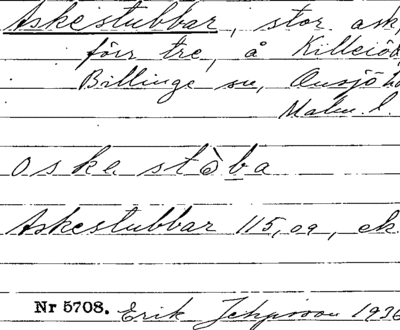 Askestubbar, stor ask,
förr tre, å
Billinge sn, Onsjö
Malm. l.
oske stòba
Askestubbar 115,09, ek
Nr 5708. Erik Jeppsson 1936